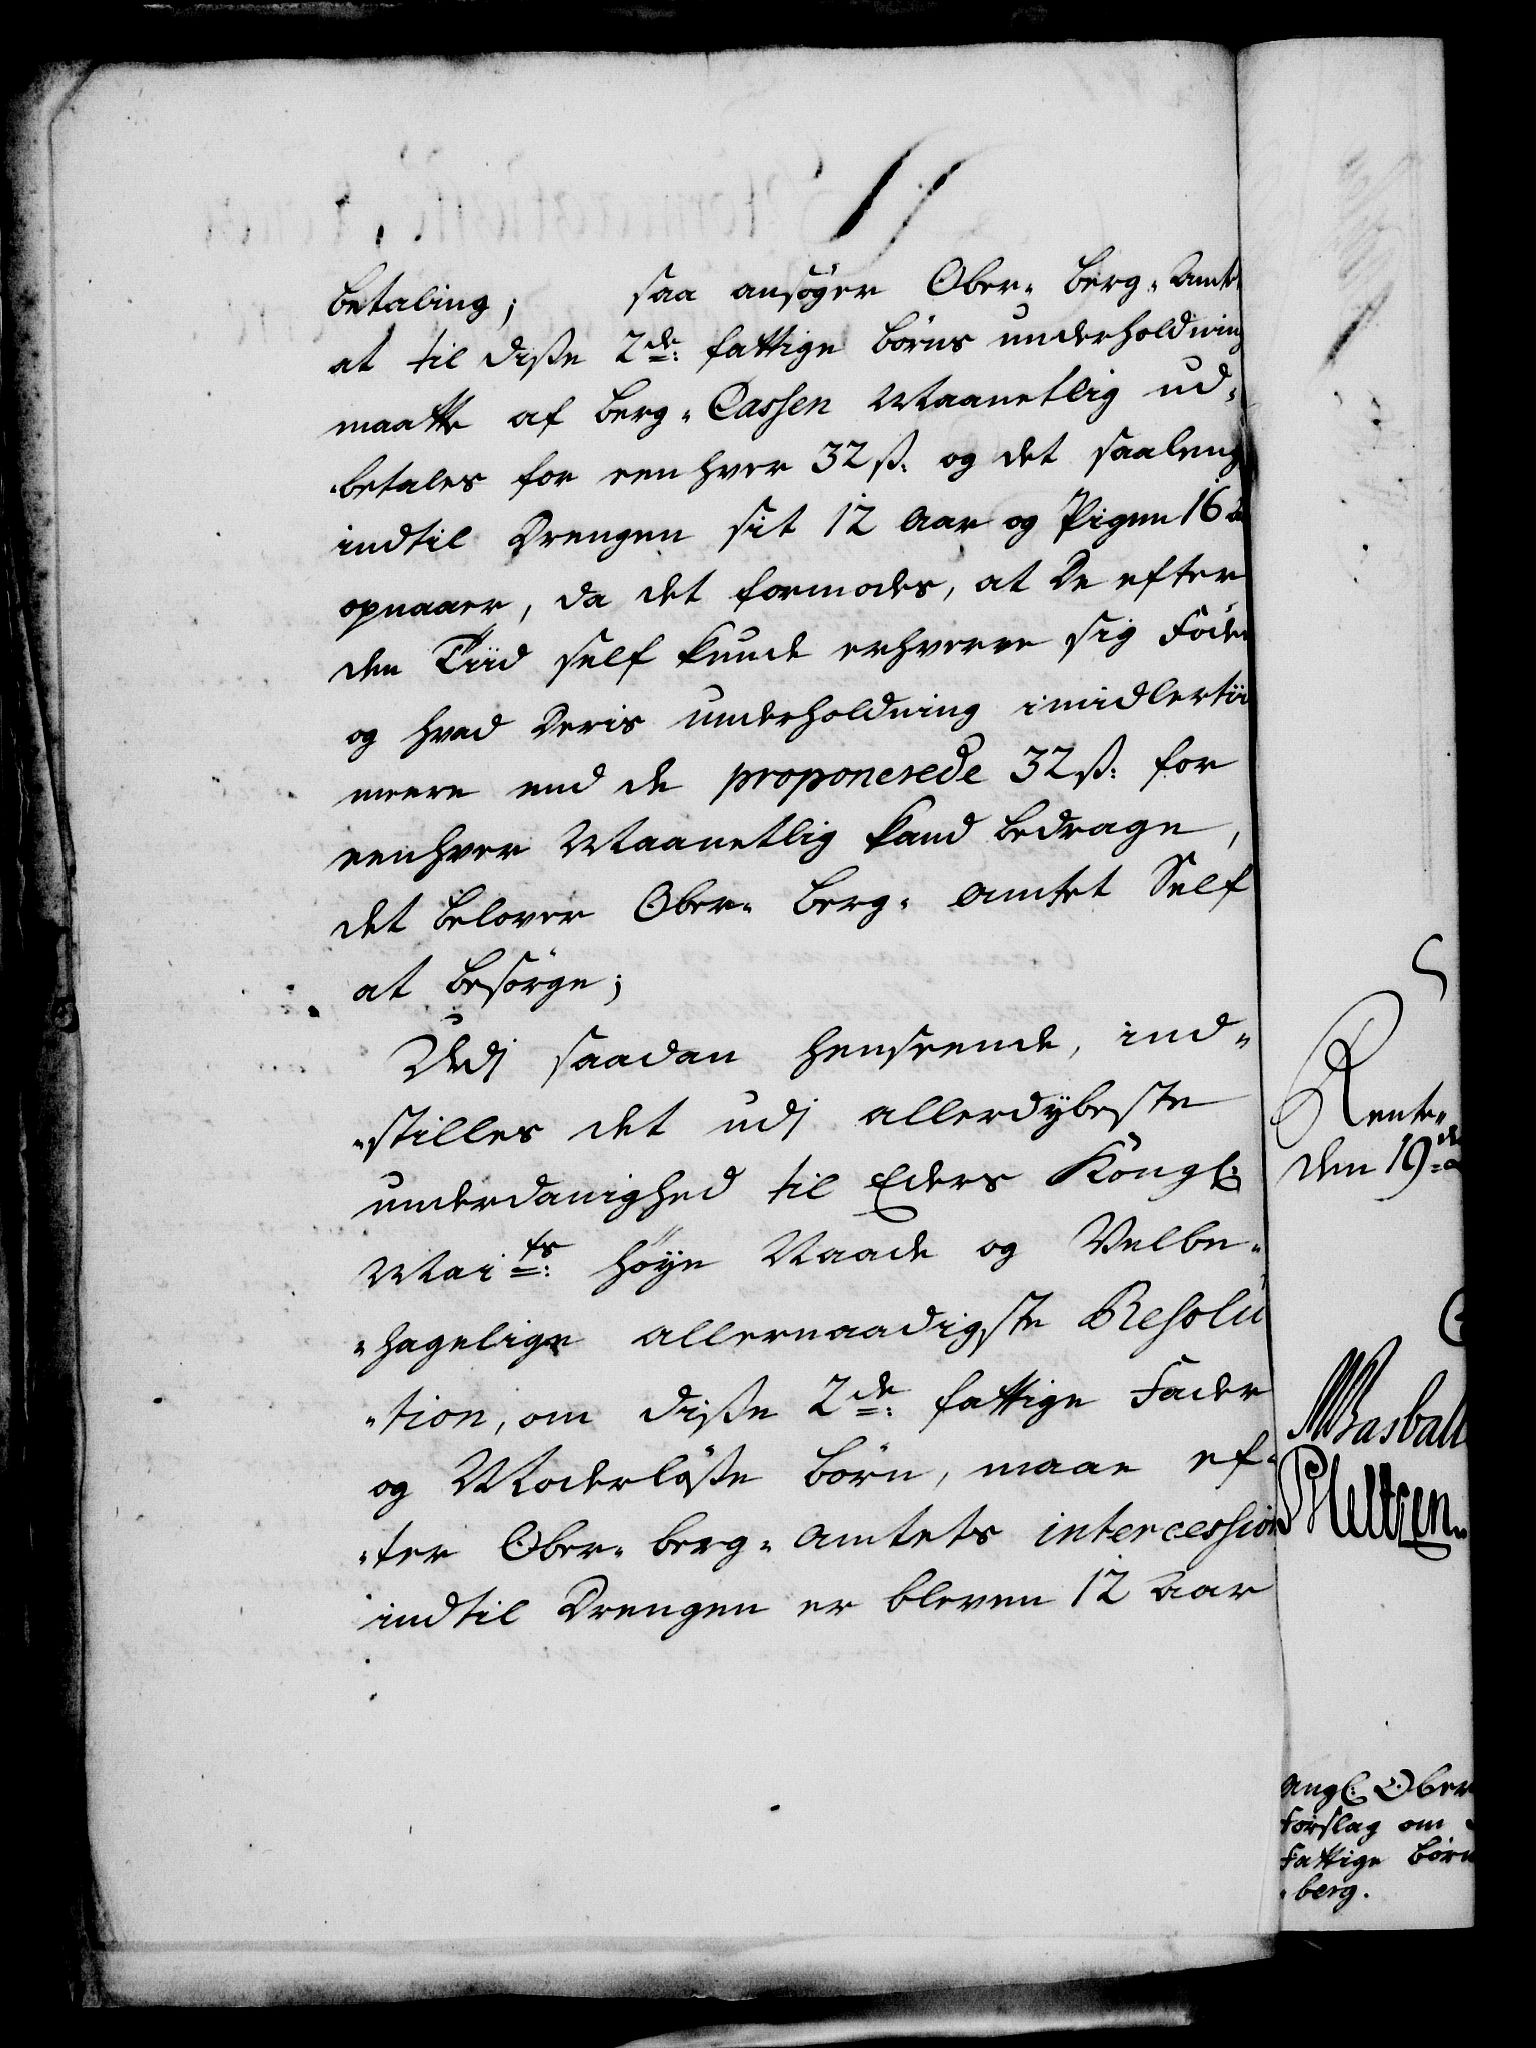 betaling; saa ansøger Ober- Berg- Amte
at til disse 2de: fattige Børns underholdning
maatte af Berg- Cassen Maanetlig ud-
-betales for een hver 32 ß: og det saaleng
indtil Drengen sit 12 Aar og Pigen 16
opnaaer, da det formodes, at De efter
den Tiid self kunde erhverve sig Föde
og hvad Deris underholdning imidlertii
meere end de proponerede 32 ß: for
eenhver Maanetlig kand bedrage,
det belover Ober- Berg- Amtet Self
at besörge;
Udj saadan henseende, ind-
-stilles det udj allerdybeste
underdanighed til Eders Köngl:
Maits: höye Naade og Velbe-
-hagelige allernaadigste Resolu
-tion, om disse 2de: fattige Fader
og Moderlöse Börn, maae ef-
-ter Ober- berg- Amtets intercession
indtil Drengen er bleven 12 Aar
Rente-
den 19de
PNeltzen
Angl: Ober
Forslag om
Fattige Börn
-berg.